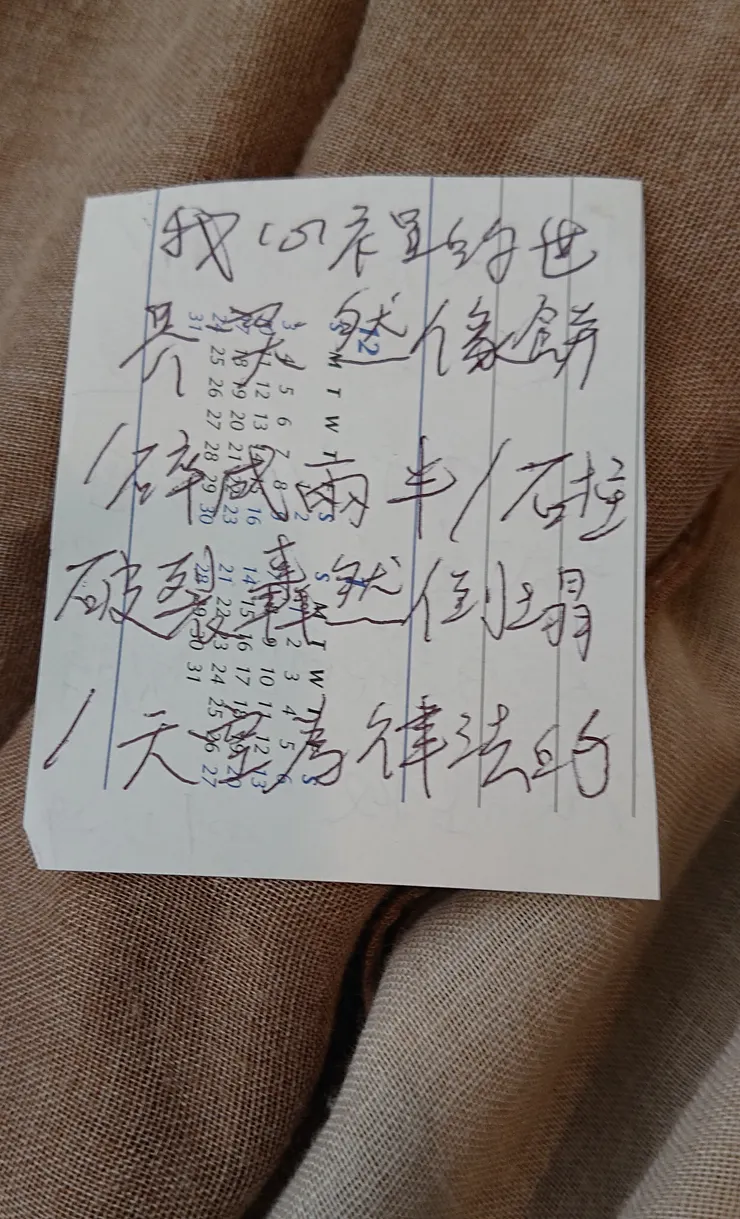 我心裡的世
界突然像餅
/碎成兩半/石柱
破裂轟然倒塌
/天空為律法的
12
S M T W T S
2
3 4 5 6 7 8 9
11 12 13 14 16
18 19 20 21 23
24 25 26 27 28 29 30
31
S M T W T S
1 2 3 4 5 6
9 10 11 12 13
14 15 16 17 18 19 20
21 22 23 24 25 26 27
28 29 30 31